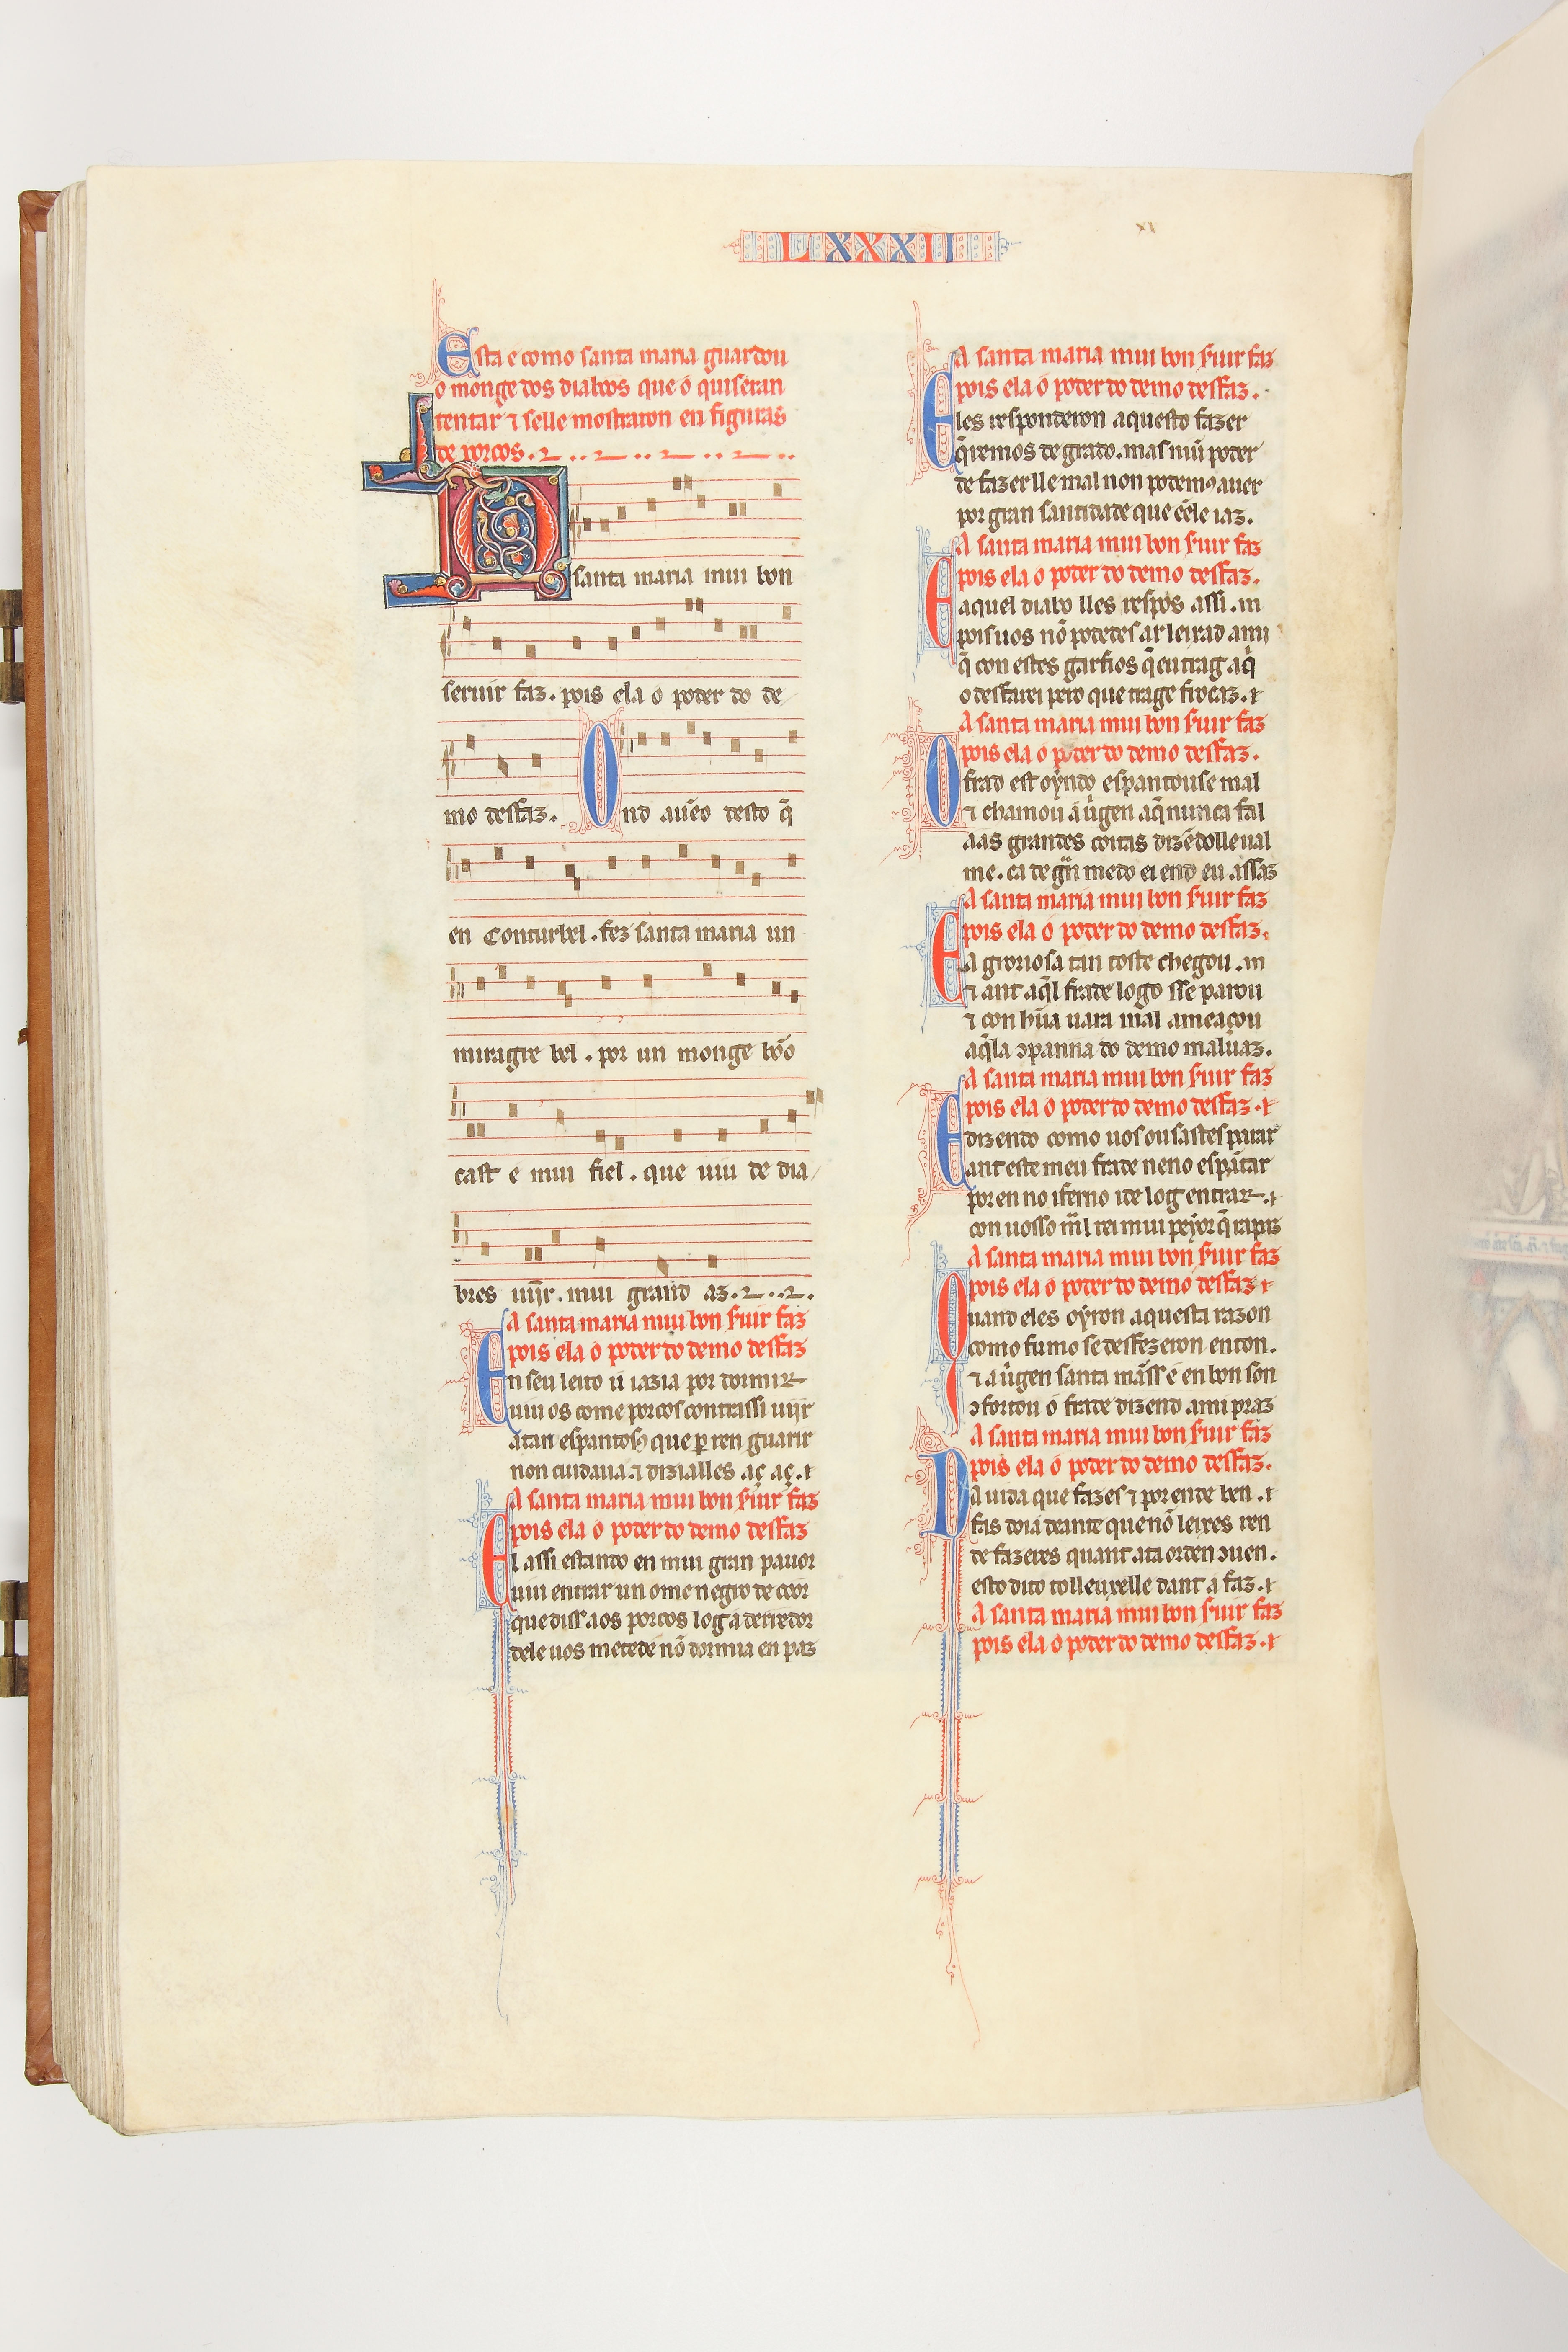 LXXXII
Esta e como santa maria guardou
o monge dos diabros que o quiseran
tentar ⁊ selle mostraron en figuras
de porcos.
A santa maria mui bon
seruir faz. pois ela o poder do de
mo desfaz. Ond auẽo desto q̃
en Conturbel. fez santa maria un
miragre bel. por un monge bõo
cast e mui fiel. que uiu de dia
bres uĩjr. mui grand az.
A santa maria mui bon ſuir faz
pois ela o poder do demo desfaz
En seu leito u iazia por dormir
uiu os come porcos contra ssi uĩjr
atan espantosꝯ que ꝑ ren guarir
non cuidaua. ⁊ dizialles aç aç. ⁊
A santa maria mui bon ſuir faz
pois ela o poder do demo desfaz
El assi estando en mui gran pauor
uiu entrar un ome negro de coor
que diss aos porcos log a derredor
dele uos metede nõ dormia en paz
A santa maria mui bon ſuir faz
pois ela o poder do demo desfaz.
Eles responderon aquesto fazer
q̃remos de grado. mas niũ poder
de fazerlle mal non podemꝯ auer
por gran santidade que ẽele iaz.
A santa maria mui bon ſuir faz
pois ela o poder do demo desfaz.
E aquel diabo lles respos assi. m
pois uos nõ podedes ar leixad ami
q̃ con estes garfios q̃ eu trag aq̃
o desfarei pero que trage frocaz. ⁊
A santa maria mui bon ſuir faz
pois ela o poder do demo desfaz.
O frad est oyndo espantouse mal
⁊ chamou a ũgen aq̃ nunca fal
aas grandes coitas dizẽdolle ual
me. ca de gñ medo ei end eu assaz
A santa maria mui bon ſuir faz
pois ela o poder do demo desfaz.
E a groriosa tan toste chegou. m
⁊ ant aq̃l frade logo sse parou
⁊ con hũa uara mal ameaçou
aq̃la ɔpanna do demo maluaz.
A santa maria mui bon ſuir faz
pois ela o poder do demo desfaz. ⁊
E dizendo como uos ousastes parar
ant este meu frade neno espãtar
poren no iferno ide log entrar. ⁊
con uosso m̃l rei mui peyor q̃ rapaz
A santa maria mui bon ſuir faz
pois ela o poder do demo desfaz ⁊
Quand eles oyron aquesta razon
como fumo se desfezeron enton.
⁊ a ũgen santa mãss e en bon son
ɔfortou o frade dizend ami praz
A santa maria mui bon ſuir faz
pois ela o poder do demo desfaz.
Da uida que fazes ⁊ porende ben. ⁊
fas doia deante que nõ leixes ren
de fazeres quant ata orden ɔuen.
esto dito tolleuxelle dant a faz. ⁊
A santa maria mui bon ſuir faz
pois ela o poder do demo desfaz. ⁊